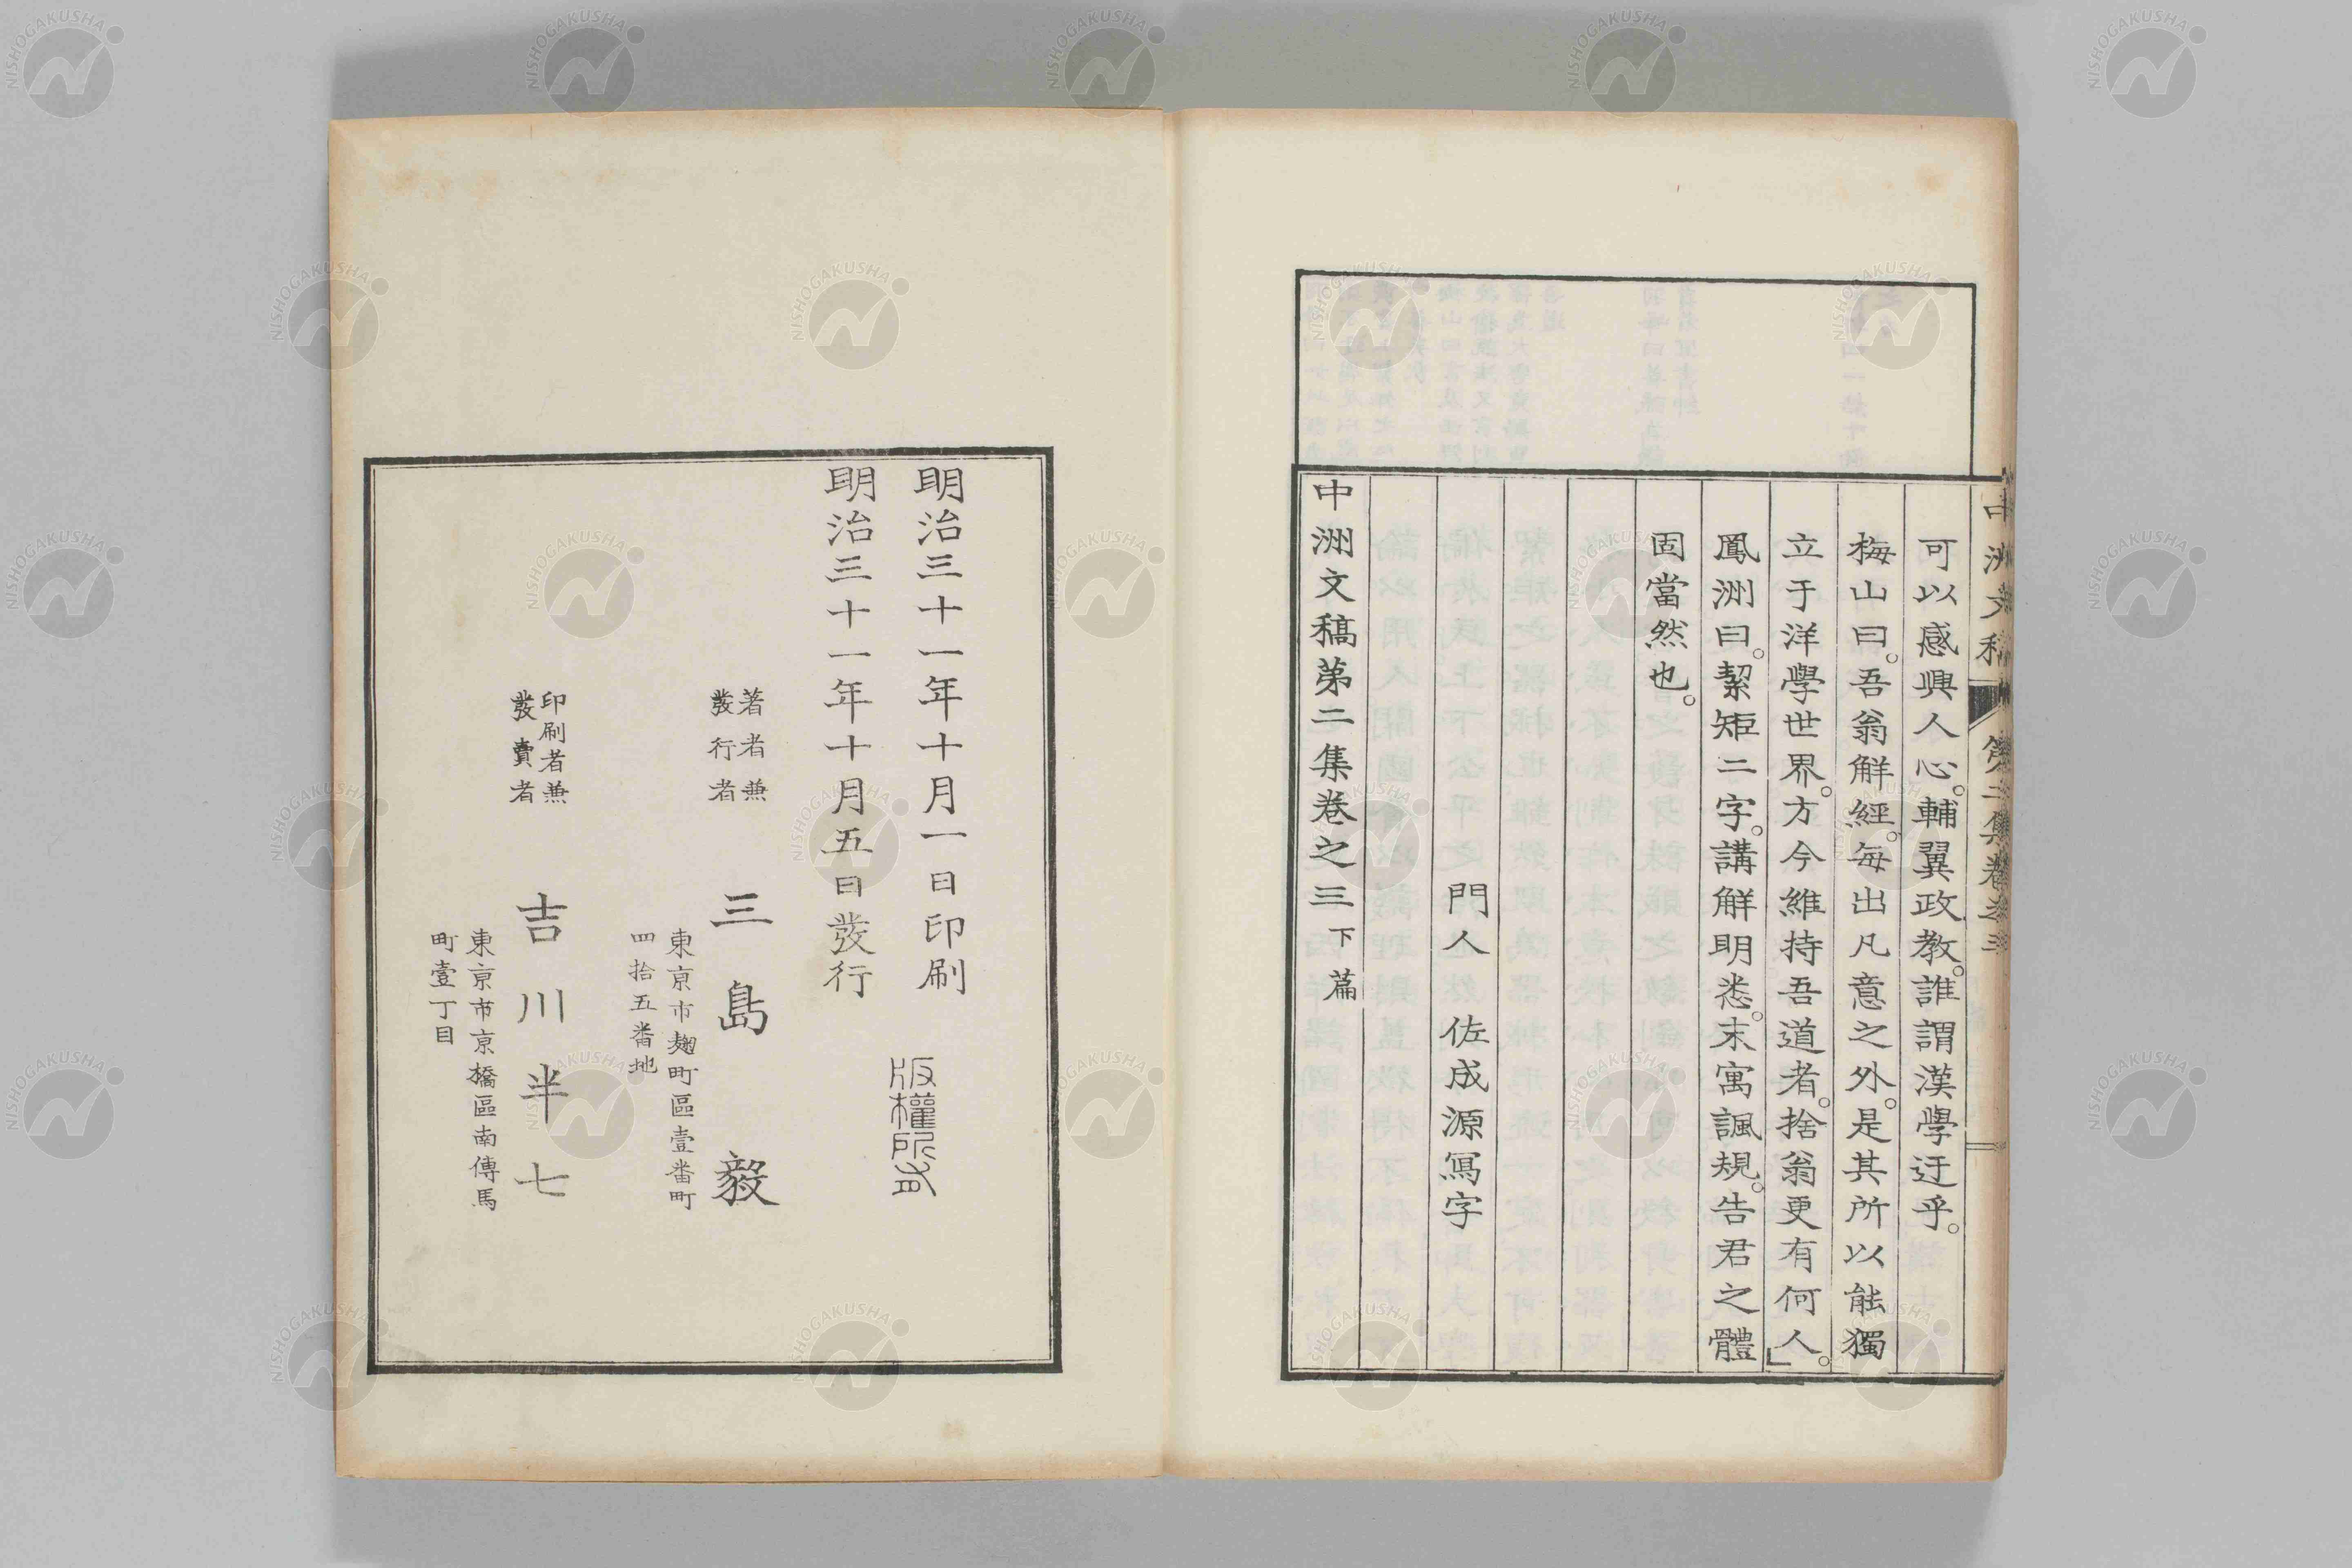 中洲文稿 第二集卷之三
可以感興人心。輔翼政教。誰謂漢學迂乎。
梅山曰。吾翁解經。每出凡意之外。是其所以能獨
立于洋學世界。方今維持吾道者。捨翁更有何人。」
鳳洲曰。絜矩二字。講解明悉。末寓諷規。告君之體
固當然也。
門人 佐成源寫字
中洲文稿第二集卷之三下篇
明治三十一年十月一日印刷
明治三十一年十月五日發行
版權所有
著者兼
發行者
三島毅
東京市麹町區壹番町
四拾五番地
印刷者兼
發賣者
吉川半七
東京市京橋區南傳馬
町壹丁目
NISHOGAKUSHA